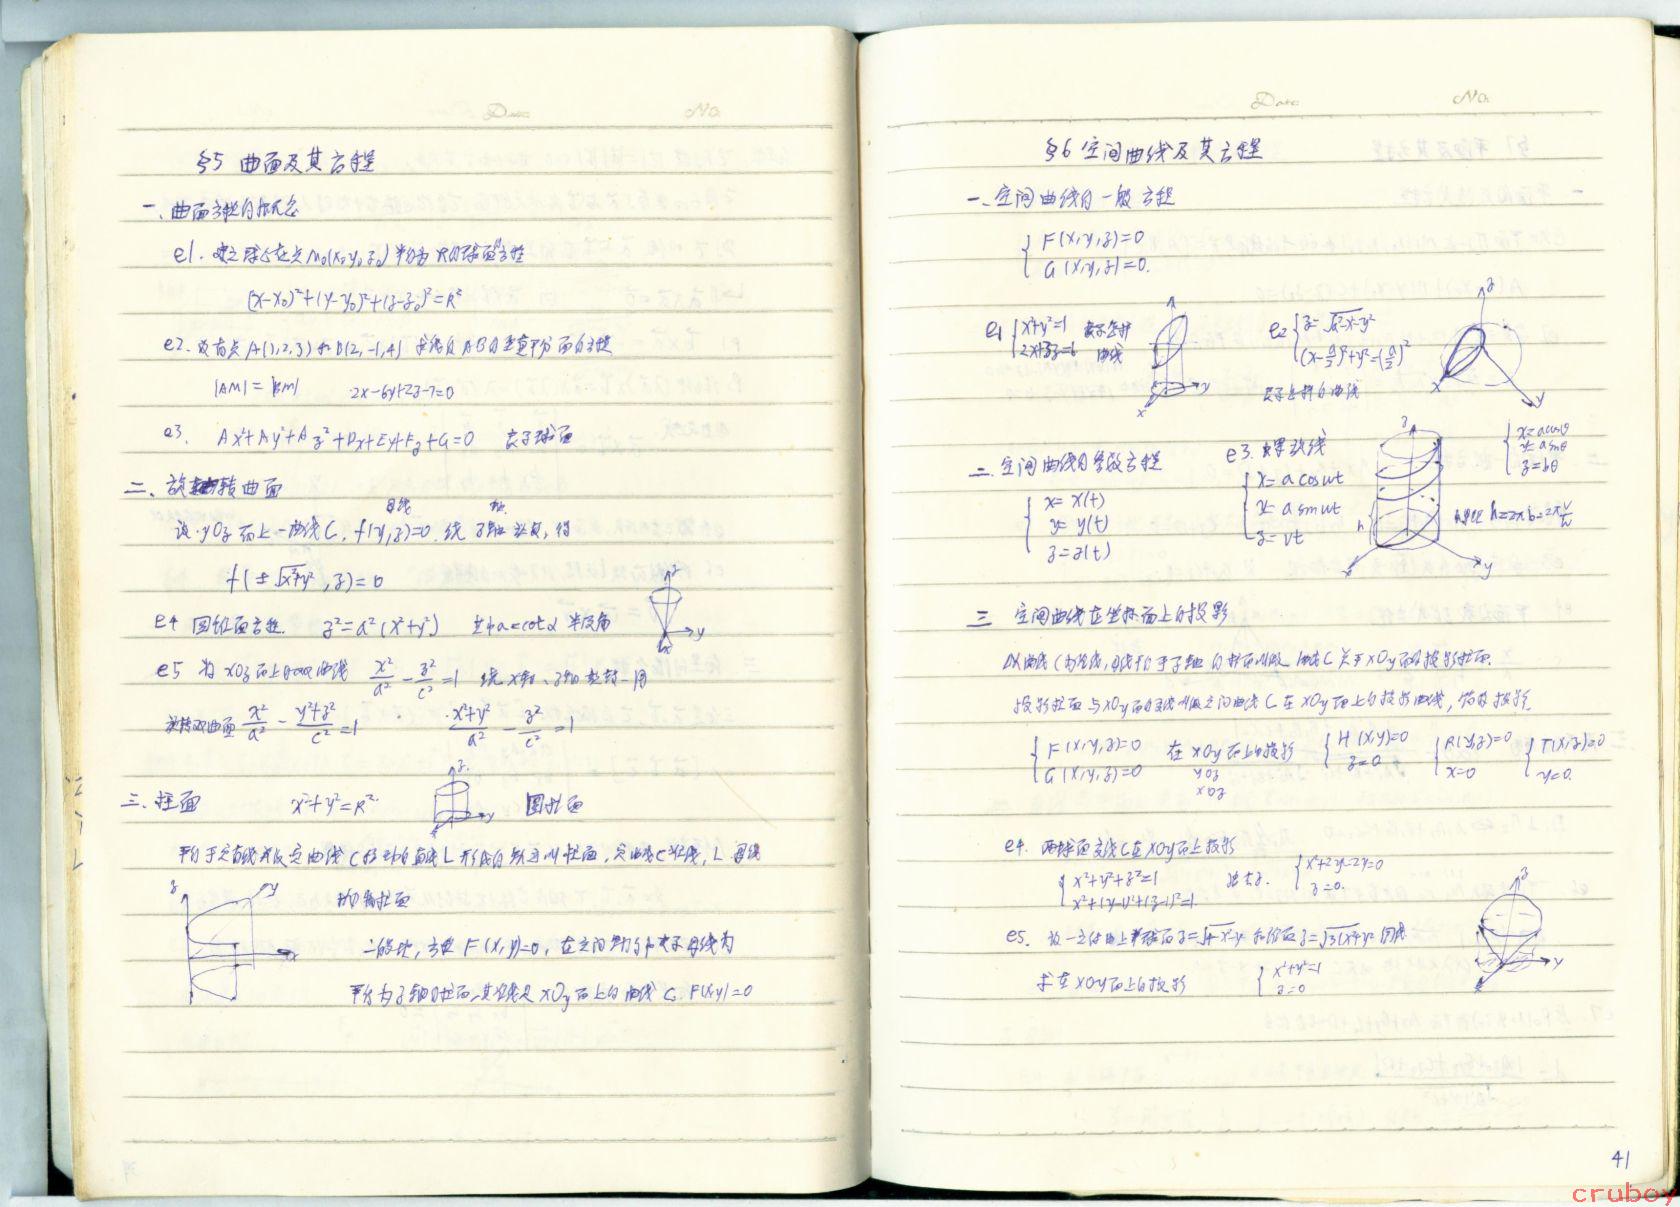 Date No.
§5 曲面及其方程
一、曲面方程的概念
e1. 建立球心在点M₀(x₀,y₀,z₀) 半径为R的球面方程
(x-x₀)²+(y-y₀)²+(z-z₀)²=R²
e2. 设有点A(1,2,3)和B(2,-1,4) 求线段AB的垂直平分面的方程
|AM|=|BM| 2x-6y+2z-7=0
e3. Ax²+Ay²+Az²+Dx+Ey+Fz+G=0 表示球面
二、旋转曲面
母线 轴
设yOz面上一曲线C, f(y,z)=0 绕z轴
f(±√x²+y², z)=0
e4 圆锥面方程. z²=a²(x²+y²) 其中a=cotα 半顶角
y
e5 将xOz面上的双曲线 x²/a² - z²/c² =1 绕x轴、z轴 一周
旋转双曲面 x²/a² - (y²+z²)/c² =1 (x²+y²)/a² - z²/c² =1
三、柱面 x²+y²=R² z y 圆柱面
平行于定直线并沿定曲线C移动的直线L形成的轨迹叫柱面, 定曲线C准线, L 母线
z y x
抛物柱面
一般地, 方程F(x,y)=0, 在空间 表示母线
平行于z轴的柱面, 其准线是xOy面上的曲线C: F(x,y)=0
Date No.
§6 空间曲线及其方程
一、空间曲线的一般方程
{ F(x,y,z)=0
G(x,y,z)=0.
e1 { x²+y²=1
2x+3z=6 表示怎样曲线
x y
e2 { z=√a²-x²-y²
(x-a/2)²+y²=(a/2)²
表示怎样的曲线
z x y
二、空间曲线的参数方程
{ x=x(t)
y=y(t)
z=z(t)
e3. 螺旋线
{ x=a cosωt
y=a sinωt
z=vt
z h x y
{ x=a cosθ
y=a sinθ
z=bθ
h=2πb=2πv/ω
三 空间曲线在坐标面上的投影
以曲线C为准线, 母线平行于z轴的柱面叫做曲线C关于xOy面的投影柱面.
投影柱面与xOy面的交线叫做空间曲线C在xOy面上的投影曲线, 简称投影.
{ F(x,y,z)=0
G(x,y,z)=0 在xOy面上的投影
yOz
xOz
{ H(x,y)=0
z=0
{ R(y,z)=0
x=0
{ T(x,z)=0
y=0.
e4. 两球面交线C在xOy面上投影
{ x²+y²+z²=1
x²+(y-1)²+(z-1)²=1. 消去z. { x²+2y²-2y=0
z=0.
e5. 设一立体由上半球面z=√4-x²-y² 和锥面z=√3(x²+y²) 围成
求在xOy面上的投影 { x²+y²=1
z=0
z y x
41
cruboy